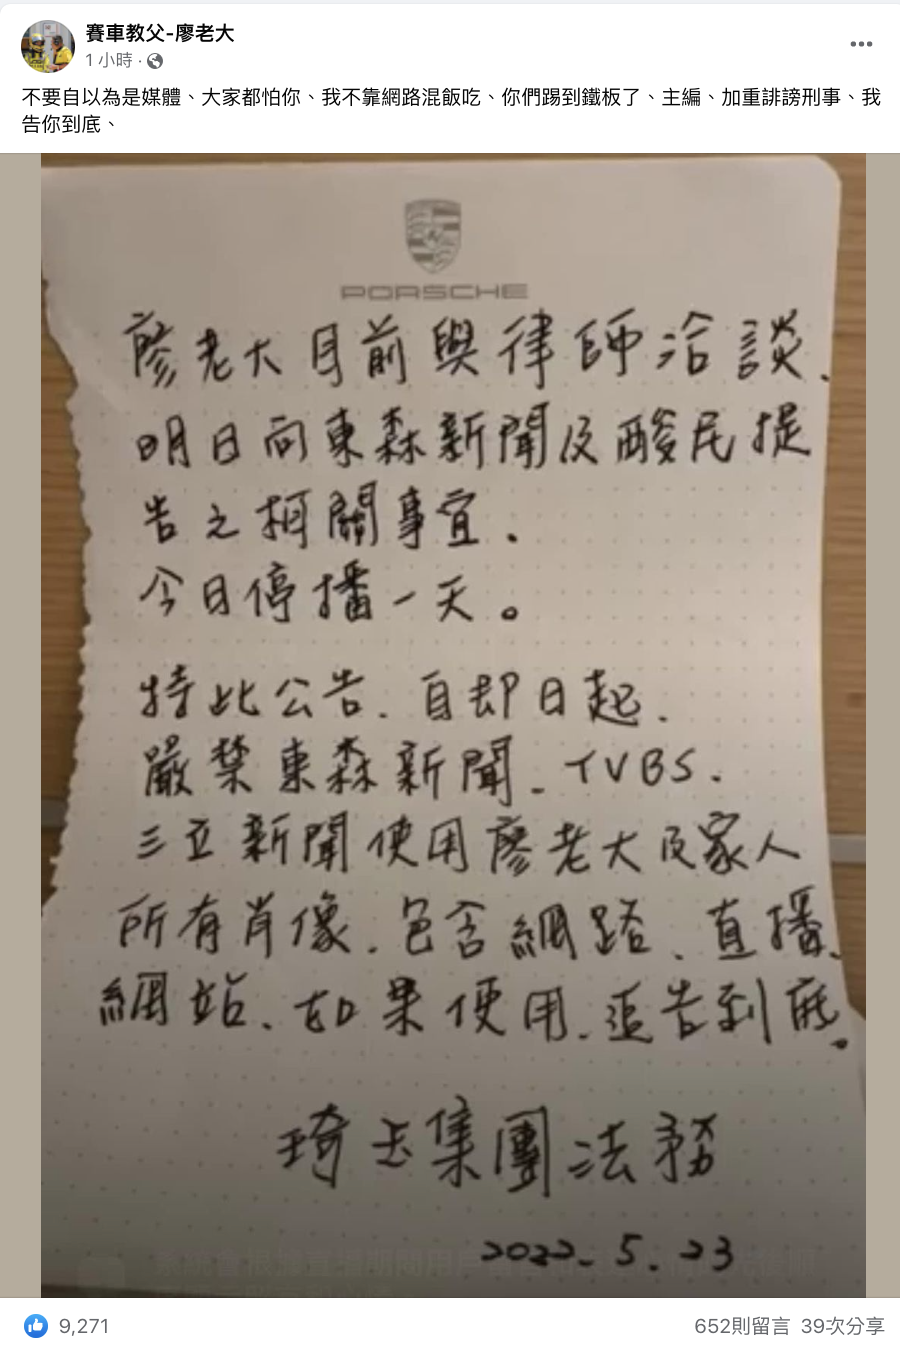 賽車教父-廖老大
1 小時
不要自以為是媒體、大家都怕你、我不靠網路混飯吃、你們踢到鐵板了、主編、加重誹謗刑事、我
告你到底、
PORSCHE
廖老大目前與律師洽談、
明日向東森新聞及酸民提
告之相關事宜.
今日停播一天。
特此公告、自即日起、
嚴禁東森新聞、TVBS、
三立新聞使用廖老大及家人
所有肖像、包含網路、直播、
網站、如果使用、追告到底。
琦玉集團法務
2022.5.23
9,271
652則留言 39次分享